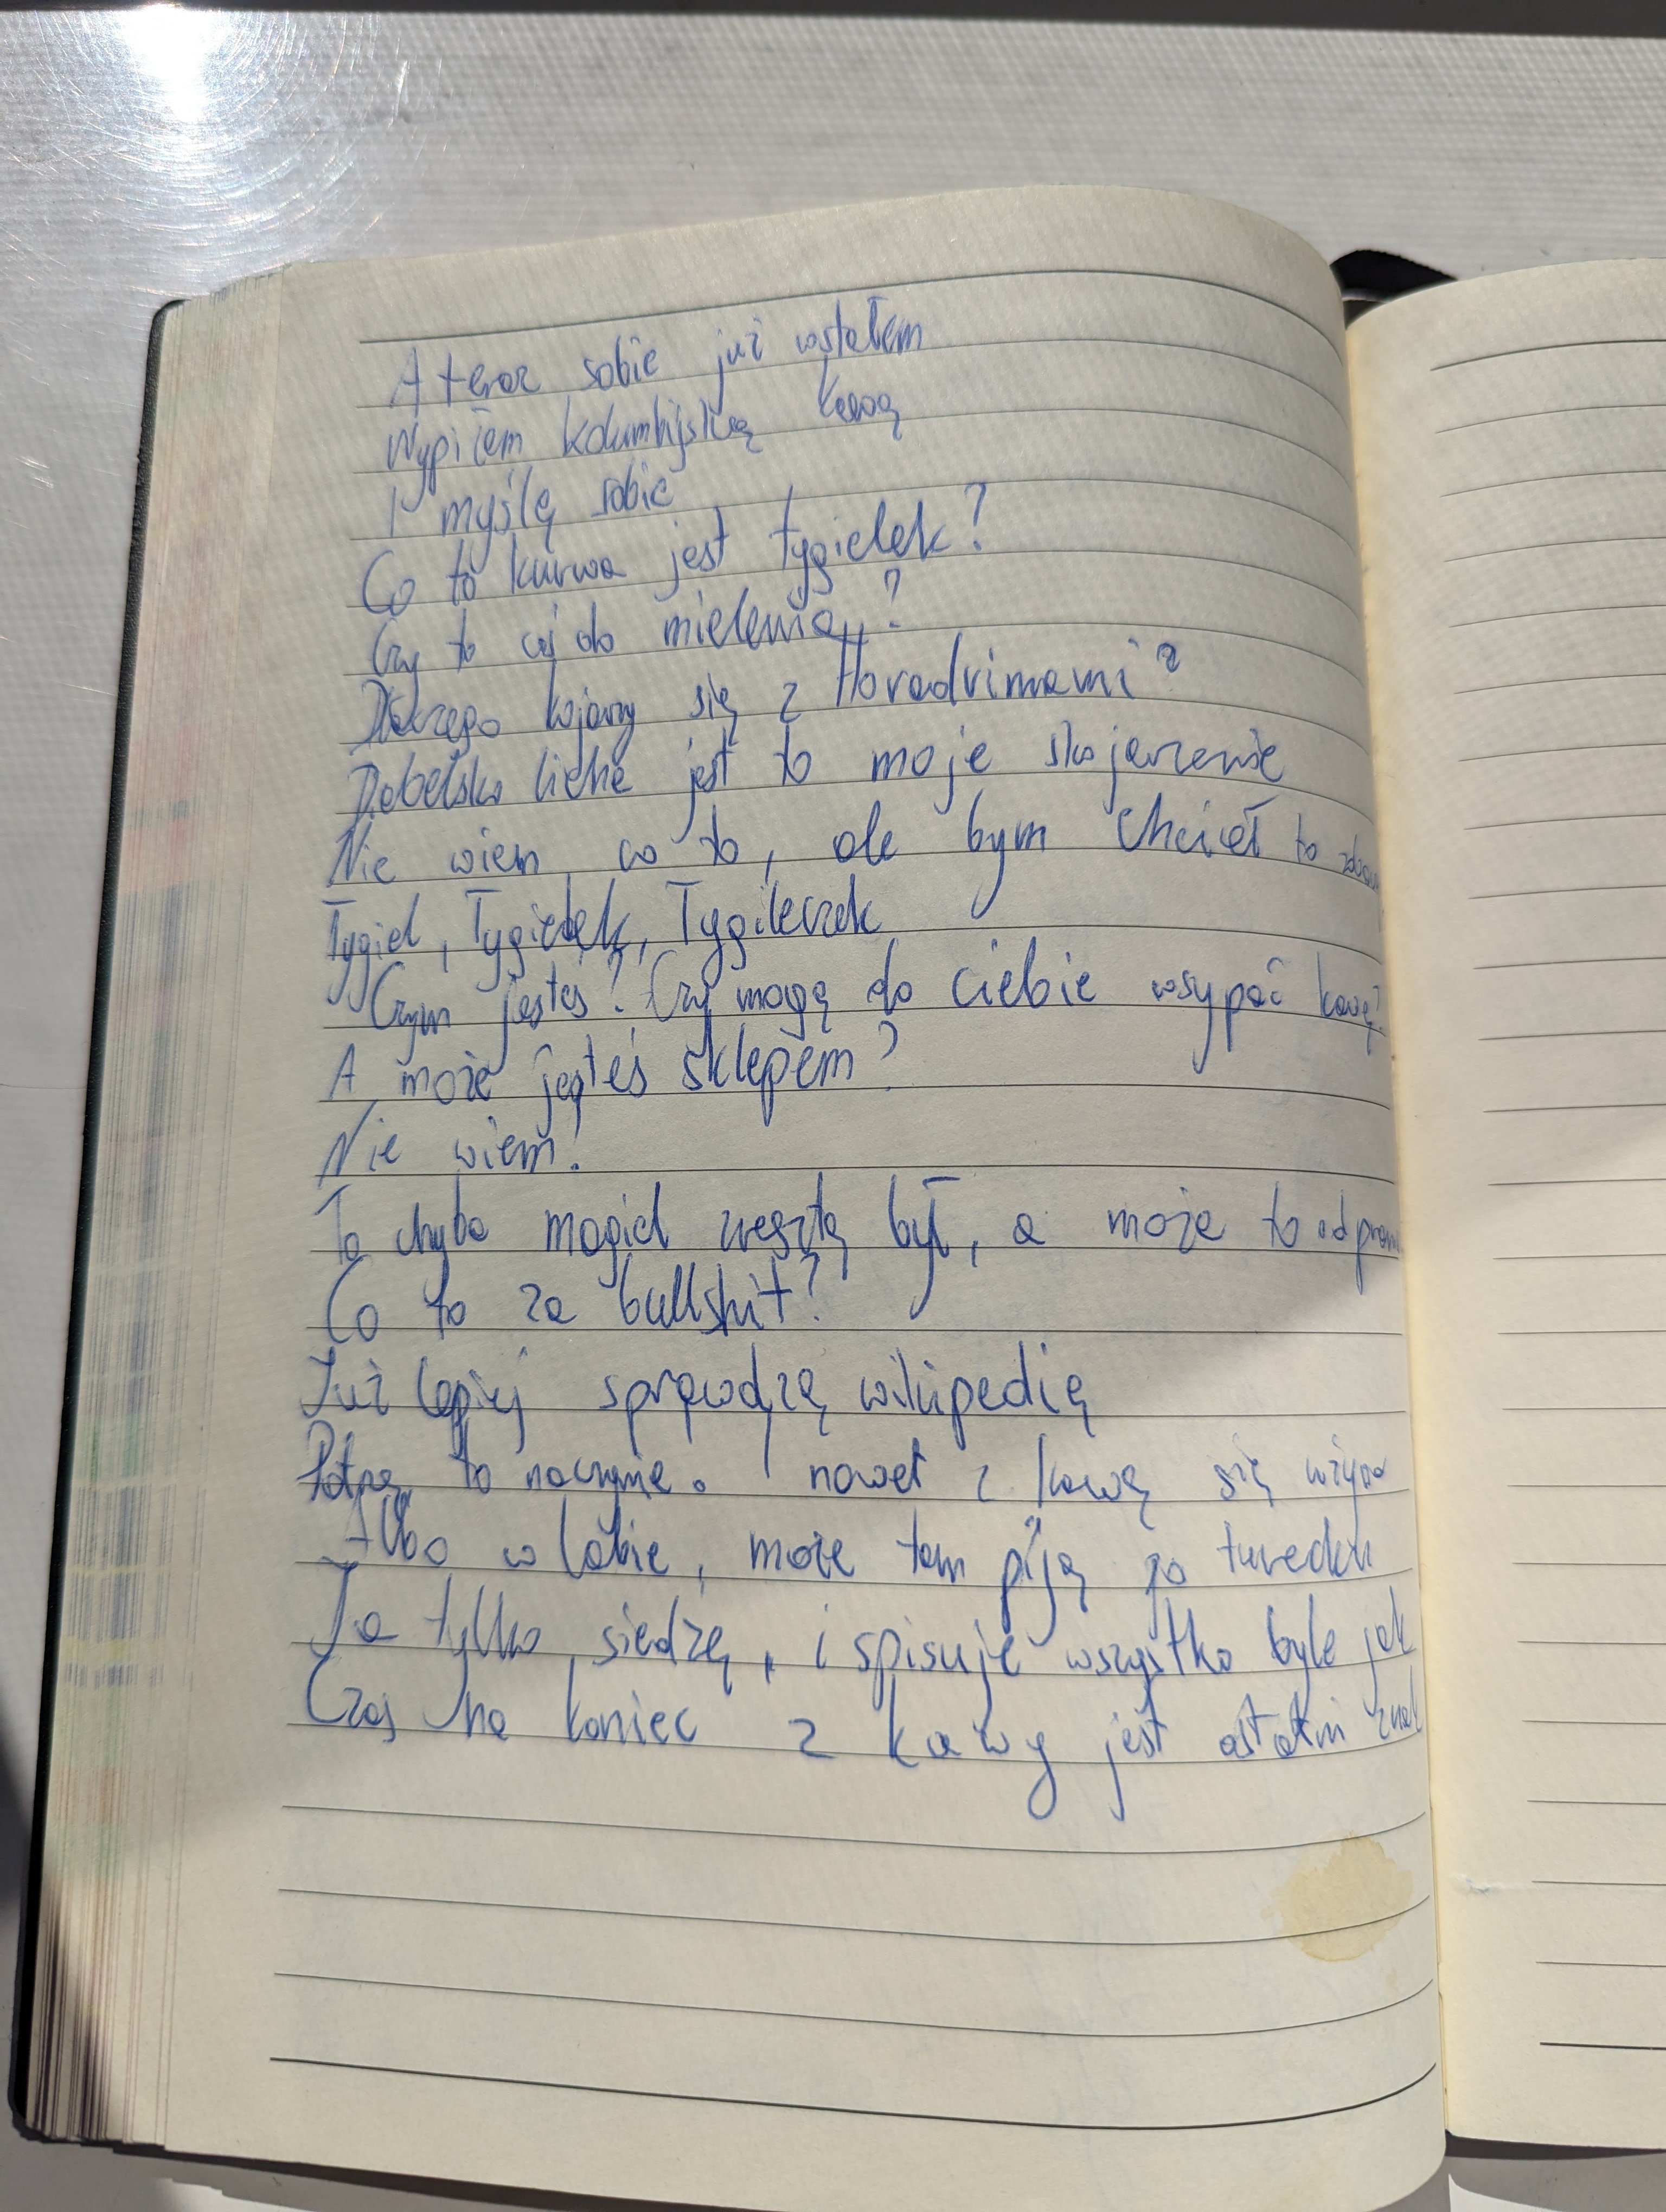 A teraz sobie już wstałem
Wypiłem kolumbijską kawą
I myślę sobie
Co to kurwa jest tygielek?
Czy to coś do mielenia?
Dlaczego kojarzy się z Horadrimami?
Diabelsko liche jest to moje skojarzenie
Nie wiem co to, ale bym chciał to
Tygiel, Tygielek, Tygileczek
Czym jesteś? Czy mogę do ciebie wsypać kawę?
A może jesteś sklepem?
Nie wiem!
To chyba magiel zresztą był, a może to od
Co to za bullshit?
Już lepiej sprawdzę wikipedię
Patrzę to naczynie. I nawet z kawą się używa
Albo w labie, może tam piją po turecku
Ja tylko siedzę, i spisuję wszystko byle jak
Czas na koniec z kawy jest ostatni znak